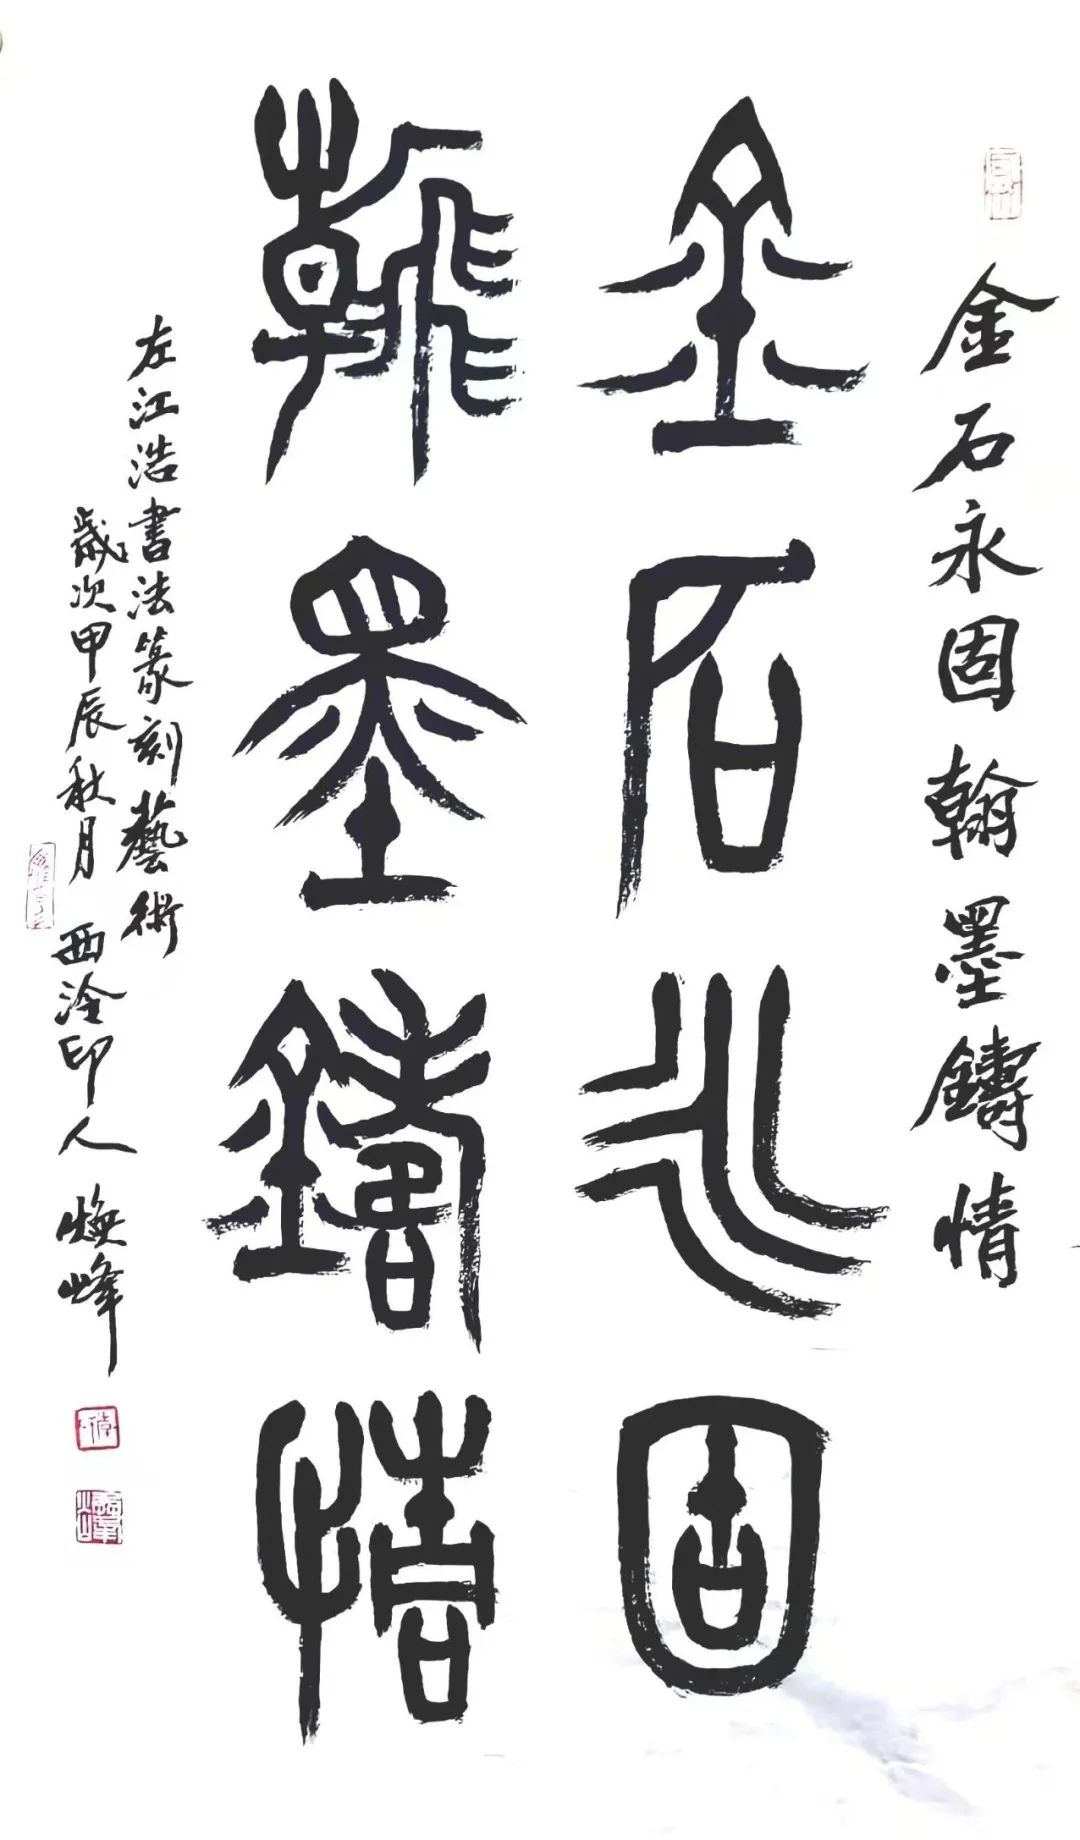 金石永固翰墨鑄情
金石永固
翰墨鑄情
左江浩書法篆刻藝術
歲次甲辰秋月 西泠印人 焕峰